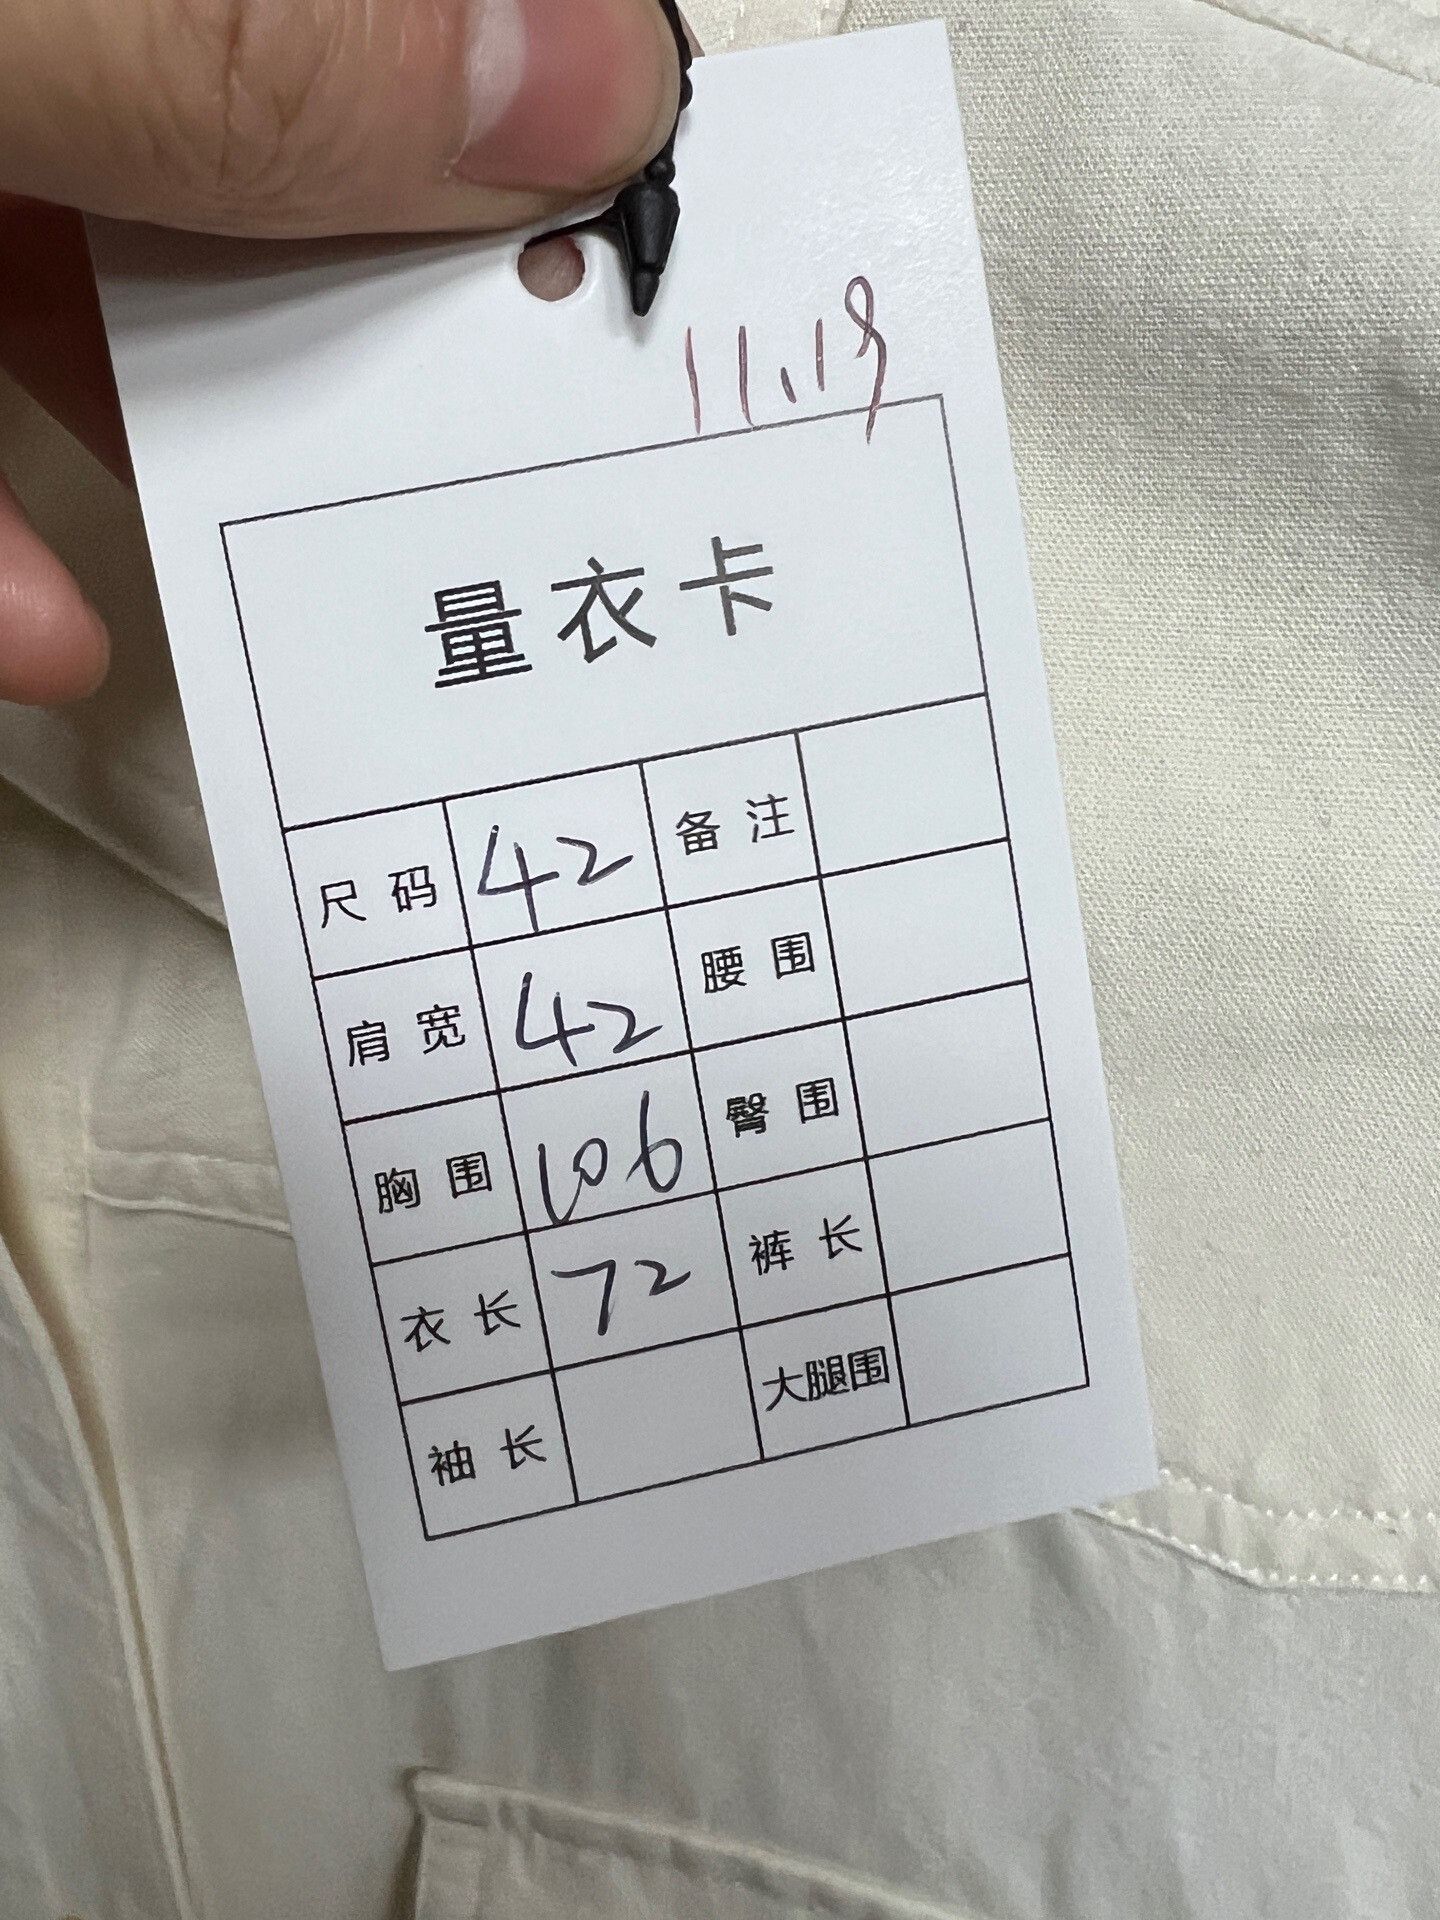 11.19
量衣卡
尺码 42 备注
肩宽 42 腰围
胸围 106 臀围
衣长 72 裤长
袖长 大腿围